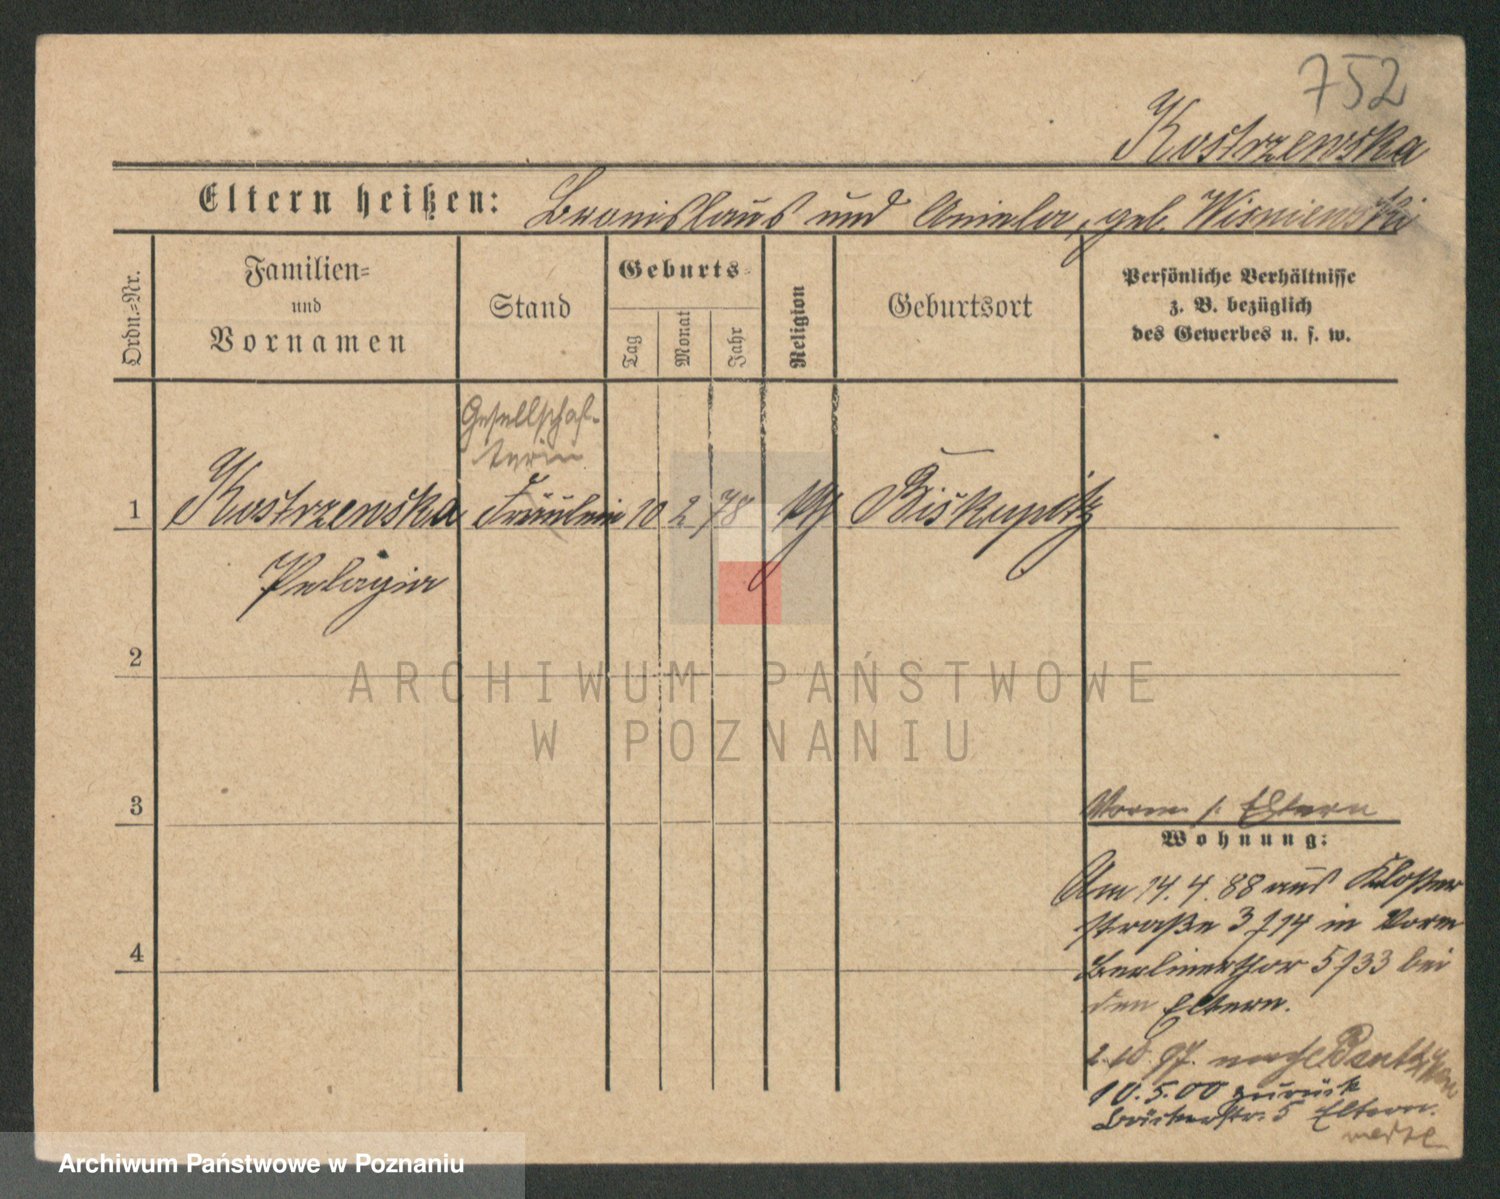 752
Kostrzewska
Eltern heißen: Bronislaus und Aniela, geb. Wisniewski
Ordn.=Nr.
Familien=
und
Vornamen
Stand
Geburts=
Tag
Monat
Jahr
Religion
Geburtsort
Persönliche Verhältnisse
z. B. bezüglich
des Gewerbes u. s. w.
Gesellschaf-
terin
1 Kostrzewska Fräulein 10 2 78 Biskupitz
Pelagia
2
ARCHIWUM PAŃSTWOWE
W POZNANIU
3
Eltern
Wohnung:
Am 14.4.88 aus Kloster
straße 3/14 in Vorm
Berlinerthor 5/33 bei
den Eltern.
4
2.10.97. nach
10.5.00 zurück
Bäckerstr. 5 Eltern.
Archiwum Państwowe w Poznaniu